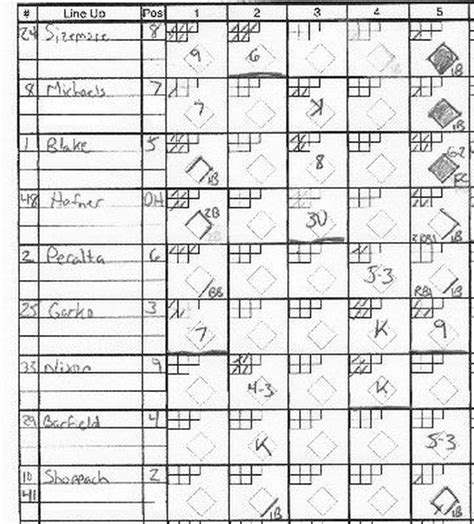 # Line Up Pos 1 2 3 4 5
24 Sizemore 8 9 6 1B
8 Michaels 7 7 K 1B
1 Blake 5 1B 8 FC
48 Hafner DH 2B 3U 2 RBI 1B
2 Peralta 6 BB 5-3 RBI 1B
25 Garko 3 7 K 9
33 Nixon 9 4-3 K
29 Barfield 4 K 5-3
10 Shoppach 2 1B 1B
41